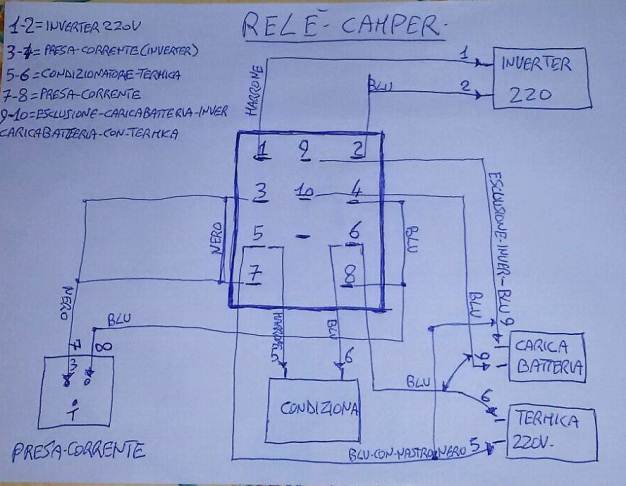 RELÈ-CAMPER-
1-2=INVERTER 220V
3-4=PRESA-CORRENTE(INVERTER)
5-6=CONDIZIONATORE-TERMICA
7-8=PRESA-CORRENTE
9-10=ESCLUSIONE-CARICABATTERIA-INVER
CARICABATTERIA-CON-TERMICA
1
INVERTER
220
2
MARRONE
BLU
1 9 2
3 10 4
5 - 6
7 8
NERO
BLU
ESCLUSIONE-INVER-BLU 9
BLU
NERO
BLU
7 8
3
PRESA-CORRENTE
BLU
6
CONDIZIONA
BLU
CARICA
BATTERIA
6
TERMICA
220V.
5
BLU-CON-NASTRO NERO